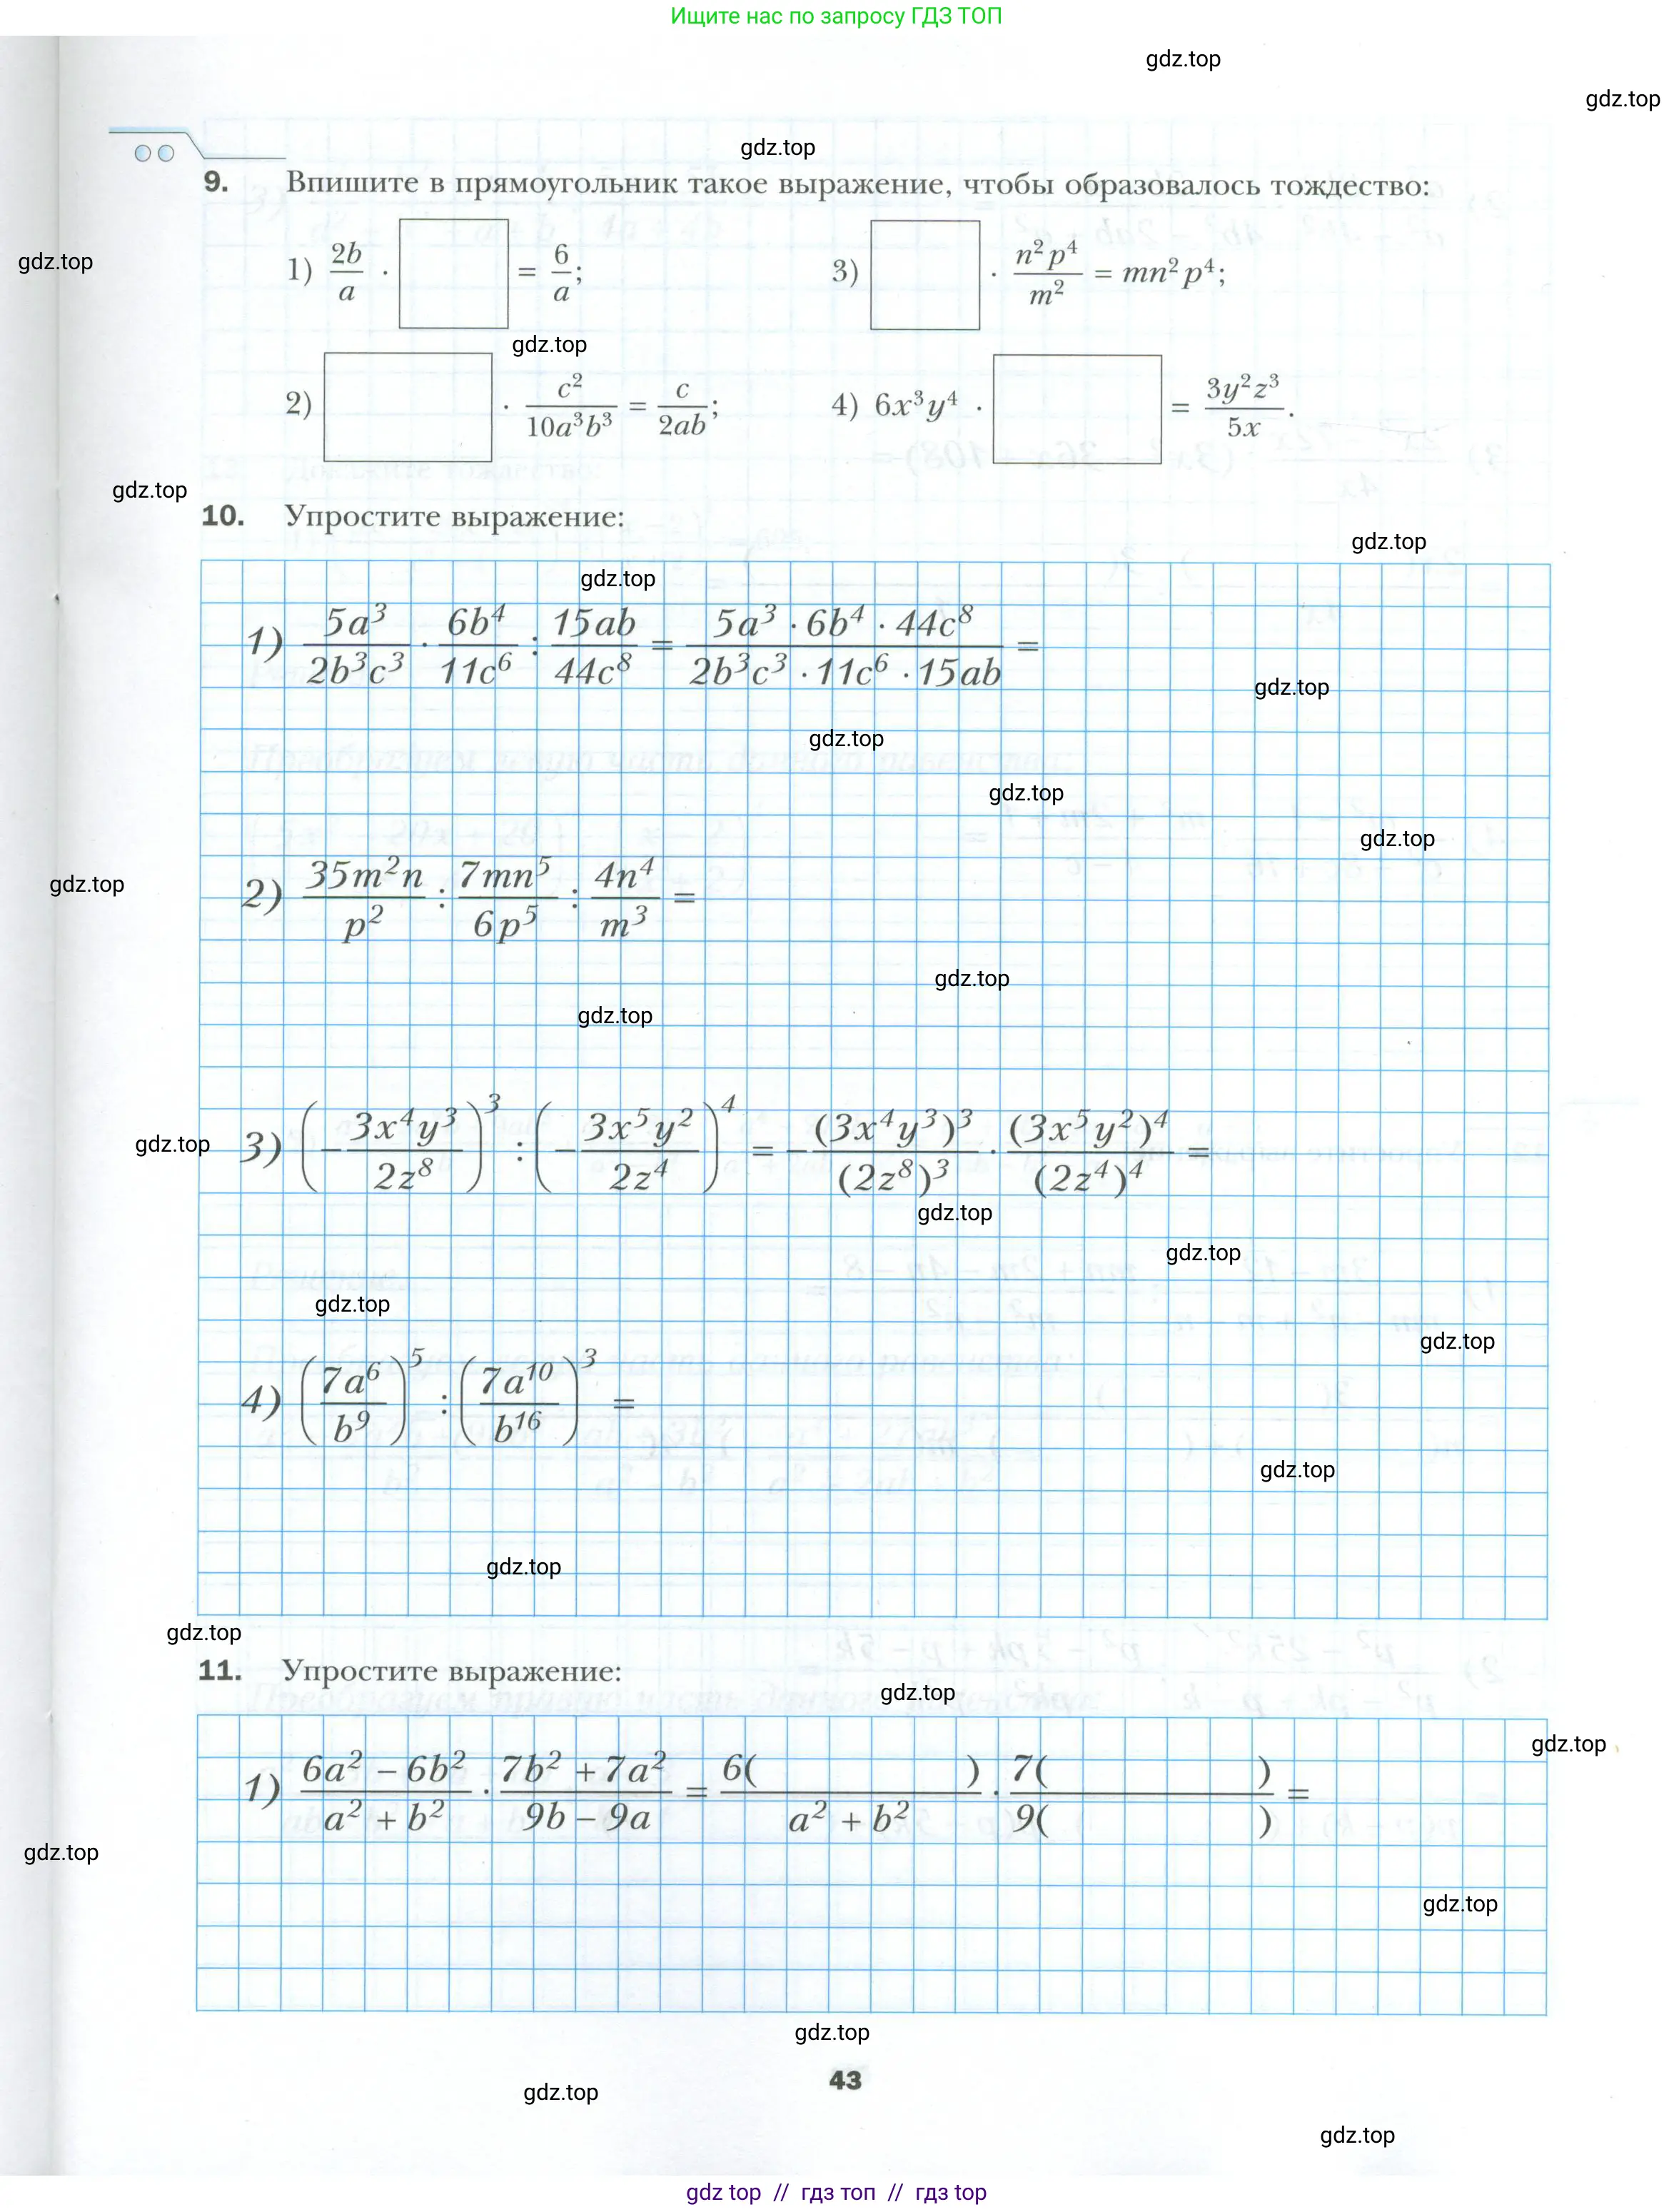 Ищите нас по запросу ГДЗ ТОП
gdz.top
gdz.top
gdz.top
9. Впишите в прямоугольник такое выражение, чтобы образовалось тождество:
gdz.top
1) 2b/a · = 6/a;
3) · n²p⁴/m² = mn²p⁴;
gdz.top
2) · c²/10a³b³ = c/2ab;
4) 6x³y⁴ · = 3y²z³/5x.
gdz.top
10. Упростите выражение:
gdz.top
gdz.top
1) 5a³/2b³c³ · 6b⁴/11c⁶ : 15ab/44c⁸ = 5a³ · 6b⁴ · 44c⁸/2b³c³ · 11c⁶ · 15ab =
gdz.top
gdz.top
gdz.top
gdz.top
gdz.top
2) 35m²n/p² : 7mn⁵/6p⁵ : 4n⁴/m³ =
gdz.top
gdz.top
gdz.top
3) (−3x⁴y³/2z⁸)³ : (−3x⁵y²/2z⁴)⁴ = −(3x⁴y³)³/(2z⁸)³ · (3x⁵y²)⁴/(2z⁴)⁴ =
gdz.top
gdz.top
gdz.top
gdz.top
4) (7a⁶/b⁹)⁵ : (7a¹⁰/b¹⁶)³ =
gdz.top
gdz.top
gdz.top
11. Упростите выражение:
gdz.top
gdz.top
1) 6a² − 6b²/a² + b² · 7b² + 7a²/9b − 9a = 6( )/a² + b² · 7( )/9( ) =
gdz.top
gdz.top
gdz.top
43
gdz.top
gdz.top
gdz top // гдз топ // гдз top